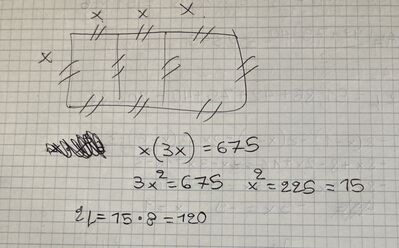 x x x
x
x(3x) = 675
3x² = 675 x² = 225 = 15
2p = 15 · 8 = 120